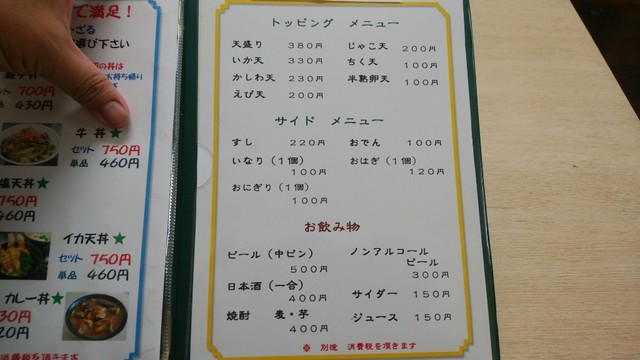 で満足！
ざる
選び下さい
の丼は
お持ち帰り
700円
430円
牛丼★
セット 750円
単品 460円
塩天丼★
750円
460円
イカ天丼★
セット 750円
単品 460円
カレー丼★
30円
20円
消費税を頂きます
トッピング メニュー
天盛り 380円
いか天 330円
かしわ天 230円
えび天 200円
じゃこ天 200円
ちく天 100円
半熟卵天 100円
サイド メニュー
すし 220円
いなり（1個）
100円
おにぎり（1個）
100円
おでん 100円
おはぎ（1個）
120円
お飲み物
ビール（中ビン）
500円
日本酒（一合）
400円
焼酎 麦・芋
400円
ノンアルコール
ビール
300円
サイダー 150円
ジュース 150円
※ 別途 消費税を頂きます